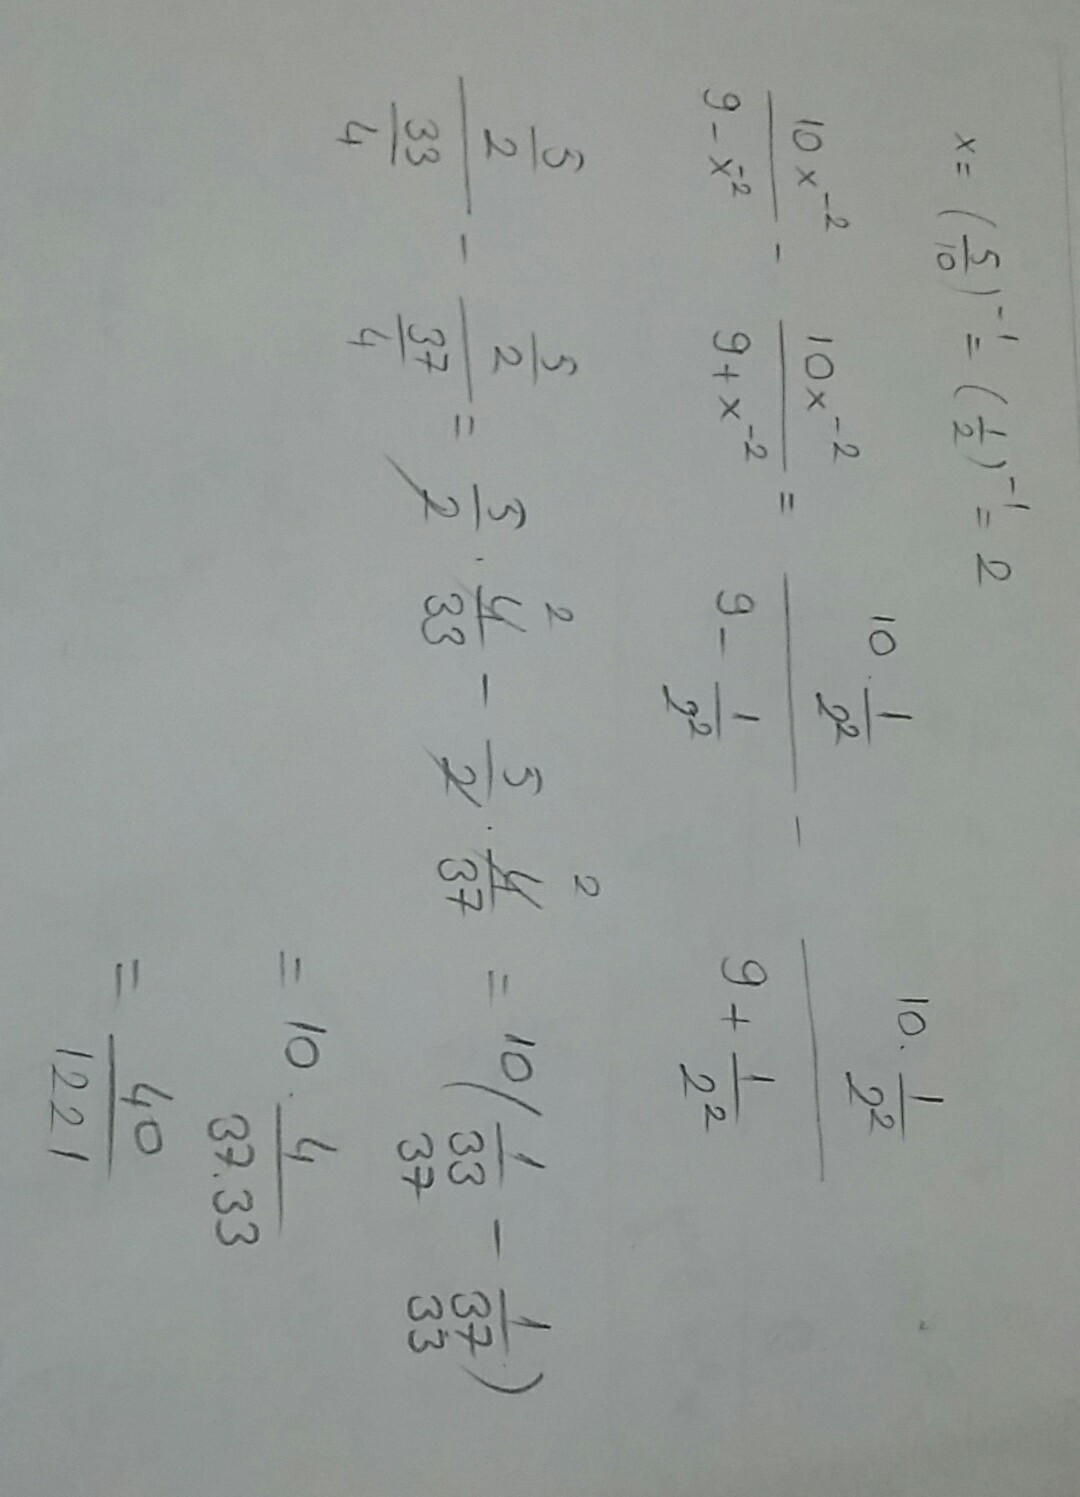 x = (5/10)^-1 = (1/2)^-1 = 2
10x^-2/(9 - x^-2) - 10x^-2/(9 + x^-2) = (10 · 1/2^2)/(9 - 1/2^2) - (10 · 1/2^2)/(9 + 1/2^2)
(5/2)/(33/4) - (5/2)/(37/4) = 5/2 · 4/33 2 - 5/2 · 4/37 2 = 10 (1/33 - 1/37)
37 33
= 10 · 4/(37.33)
= 40/1221